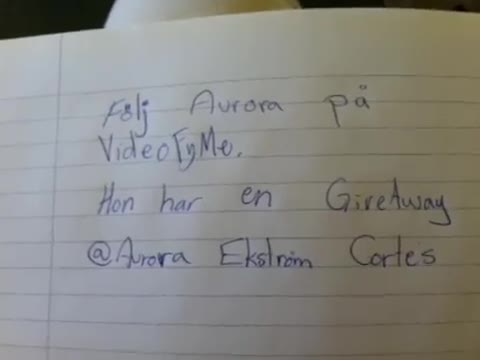 Följ Aurora på
VideoFyMe.
Hon har en GiveAway
@Aurora Ekström Cortes